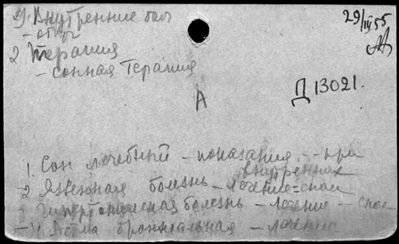 Внутренние бол
29/IV 55
2 Терапия
- сонная терапия
А
Д 13021.
1. Сон лечебный - показания - при
внутренних
2 Язвенная болезнь - лечение - сном
3 Гипертоническая болезнь - лечение - сном
4 Астма бронхиальная - лечение